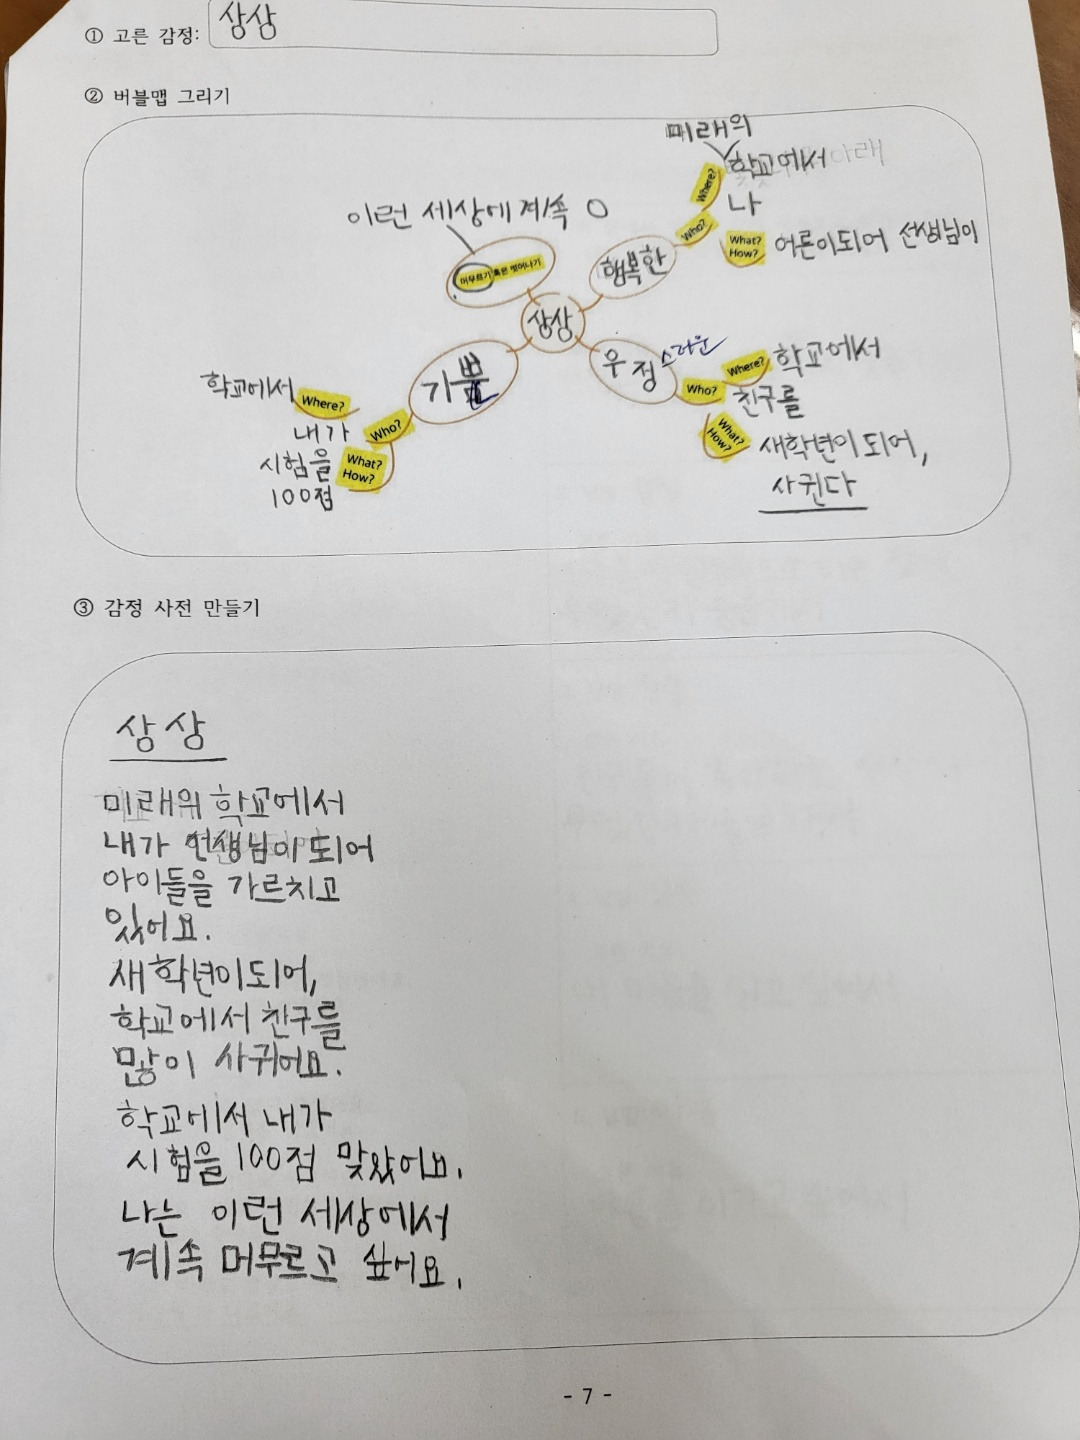 ① 고른 감정: 상상
② 버블맵 그리기
미래의
학교에서
Where?
나
Who?
What?
How?
어른이되어 선생님이
행복한
이런 세상에 계속 O
머무르기 혹은 벗어나기
상상
우정스러운
Where? 학교에서
Who? 친구를
What?
How?
새학년이 되어,
사귄다
기쁜
학교에서 Where?
내가 Who?
시험을 What?
100점 How?
③ 감정 사전 만들기
상상
미래의 학교에서
내가 선생님이 되어
아이들을 가르치고
있어요.
새학년이되어,
학교에서 친구를
많이 사귀어요.
학교에서 내가
시험을 100점 맞았어요.
나는 이런 세상에서
계속 머무르고 싶어요.
- 7 -